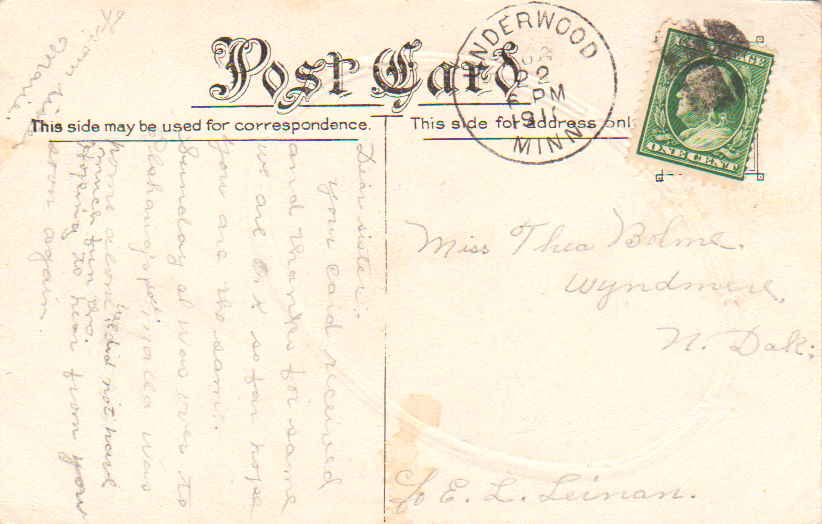 Post Card
This side may be used for correspondence.
This side for address only
UNDERWOOD
22
6 PM
191
MINN.
U.S. POSTAGE
ONE CENT
Dear sister.
your card received
and thanks for same
we are O.K so far hope
you are the same.
Sunday I was over to
was
home alone we did not have
much fun tho.
Hoping to hear from you
soon again.
from
Miss Thea Bolme.
Wyndmere,
N. Dak.
c/o E. L. Leinan.